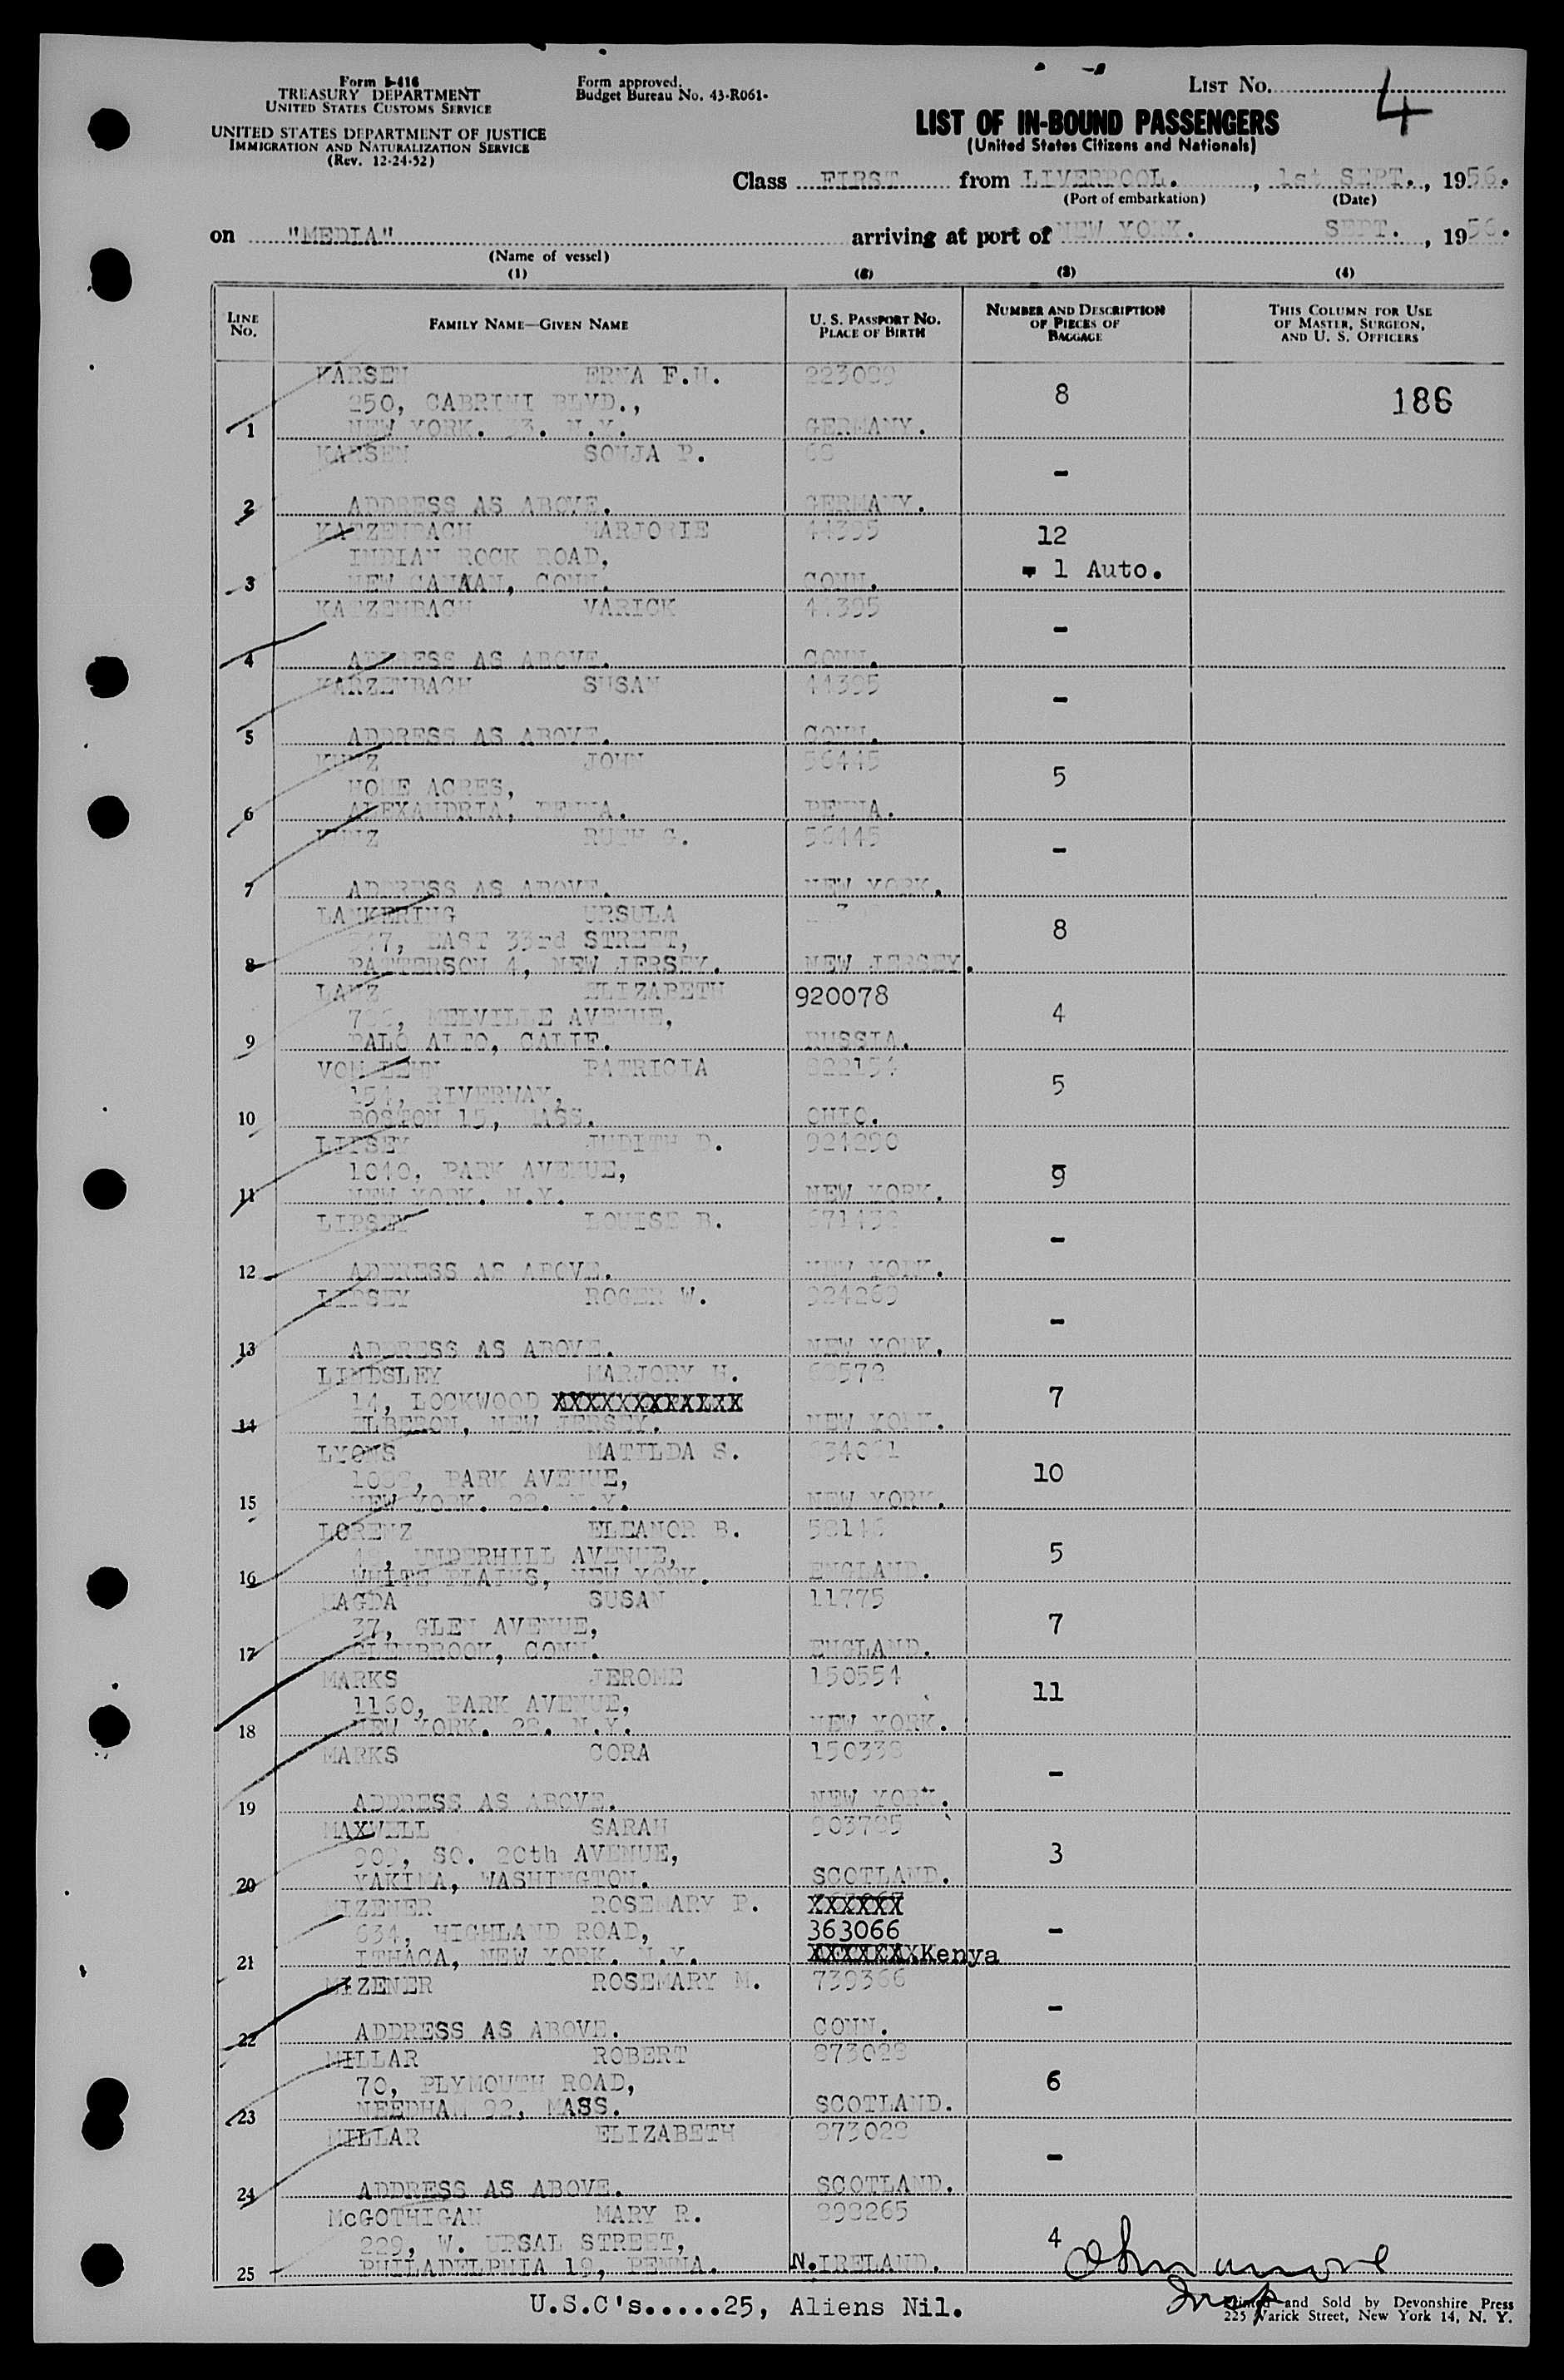 Form I-416
TREASURY DEPARTMENT
UNITED STATES CUSTOMS SERVICE
UNITED STATES DEPARTMENT OF JUSTICE
IMMIGRATION AND NATURALIZATION SERVICE
(Rev. 12-24-52)
Form approved.
Budget Bureau No. 43-R061-
LIST No. 4
LIST OF IN-BOUND PASSENGERS
(United States Citizens and Nationals)
Class FIRST from LIVERPOOL. , 1st SEPT. , 1956.
(Port of embarkation) (Date)
on "MEDIA" arriving at port of NEW YORK. SEPT. , 1956.
(Name of vessel)
(1) (2) (3) (4)
LINE No. FAMILY NAME—GIVEN NAME U. S. PASSPORT No. PLACE OF BIRTH NUMBER AND DESCRIPTION OF PIECES OF BAGGAGE THIS COLUMN FOR USE OF MASTER, SURGEON, AND U. S. OFFICERS
KARSEN ERNA F.H. 223089
250, CABRINI BLVD., 8 186
1 NEW YORK. 33. N.Y. GERMANY.
KARSEN SONJA P. 68
-
2 ADDRESS AS ABOVE. GERMANY.
KATZENBACH MARJORIE 44395 12
INDIAN ROCK ROAD, - 1 Auto.
3 NEW CANAAN, CONN. CONN.
KATZENBACH VARICK 44395
-
4 ADDRESS AS ABOVE. CONN.
KARZENBACH SUSAN 44395
-
5 ADDRESS AS ABOVE. CONN.
KUNZ JOHN 56445
HOME ACRES, 5
6 ALEXANDRIA, PENNA. PENNA.
KUNZ RUTH G. 56445
-
7 ADDRESS AS ABOVE. NEW YORK.
LANKERING URSULA
EAST 33rd STREET, 8
8 PATTERSON 4, NEW JERSEY. NEW JERSEY.
LANZ ELIZABETH 920078
MELVILLE AVENUE, 4
9 PALO ALTO, CALIF. RUSSIA.
VON LEHN PATRICIA
154, RIVERWAY, 5
10 BOSTON 15, MASS. OHIO.
LIPSEY JUDITH D. 924290
1040, PARK AVENUE, 9
11 NEW YORK. N.Y. NEW YORK.
LIPSEY LOUISE B.
-
12 ADDRESS AS ABOVE. NEW YORK.
LIPSEY ROGER W. 924269
-
13 ADDRESS AS ABOVE. NEW YORK.
LINDSLEY MARJORY H. 68572
14, LOCKWOOD XXXXXXXXXXXX 7
14 ELBERON, NEW JERSEY. NEW YORK.
LYONS MATILDA S.
PARK AVENUE, 10
15 NEW YORK. 28. N.Y. NEW YORK.
LORENZ ELEANOR B.
UNDERHILL AVENUE, 5
16 WHITE PLAINS, NEW YORK. ENGLAND.
MAGDA SUSAN 11775
37, GLEN AVENUE, 7
17 GLENBROOK, CONN. ENGLAND.
MARKS JEROME 150554
1160, PARK AVENUE, 11
18 NEW YORK. 28. N.Y. NEW YORK.
MARKS CORA 150338
-
19 ADDRESS AS ABOVE. NEW YORK.
MAXWELL SARAH 903785
909, SO. 20th AVENUE, 3
20 YAKIMA, WASHINGTON. SCOTLAND.
MIZENER ROSEMARY P. XXXXXX
634, HIGHLAND ROAD, 363066 -
21 ITHACA, NEW YORK. N.Y. XXXXXXXKenya
MIZENER ROSEMARY M. 739366
-
22 ADDRESS AS ABOVE. CONN.
MILLAR ROBERT 873028
70, PLYMOUTH ROAD, 6
23 NEEDHAM 92, MASS. SCOTLAND.
MILLAR ELIZABETH 873028
-
24 ADDRESS AS ABOVE. SCOTLAND.
McGOTHIGAN MARY R. 898265
229, W. UPSAL STREET, 4
25 PHILADELPHIA 19, PENNA. N.IRELAND.
U.S.C's.....25, Aliens Nil. Insp
Printed and Sold by Devonshire Press
225 Varick Street, New York 14, N. Y.